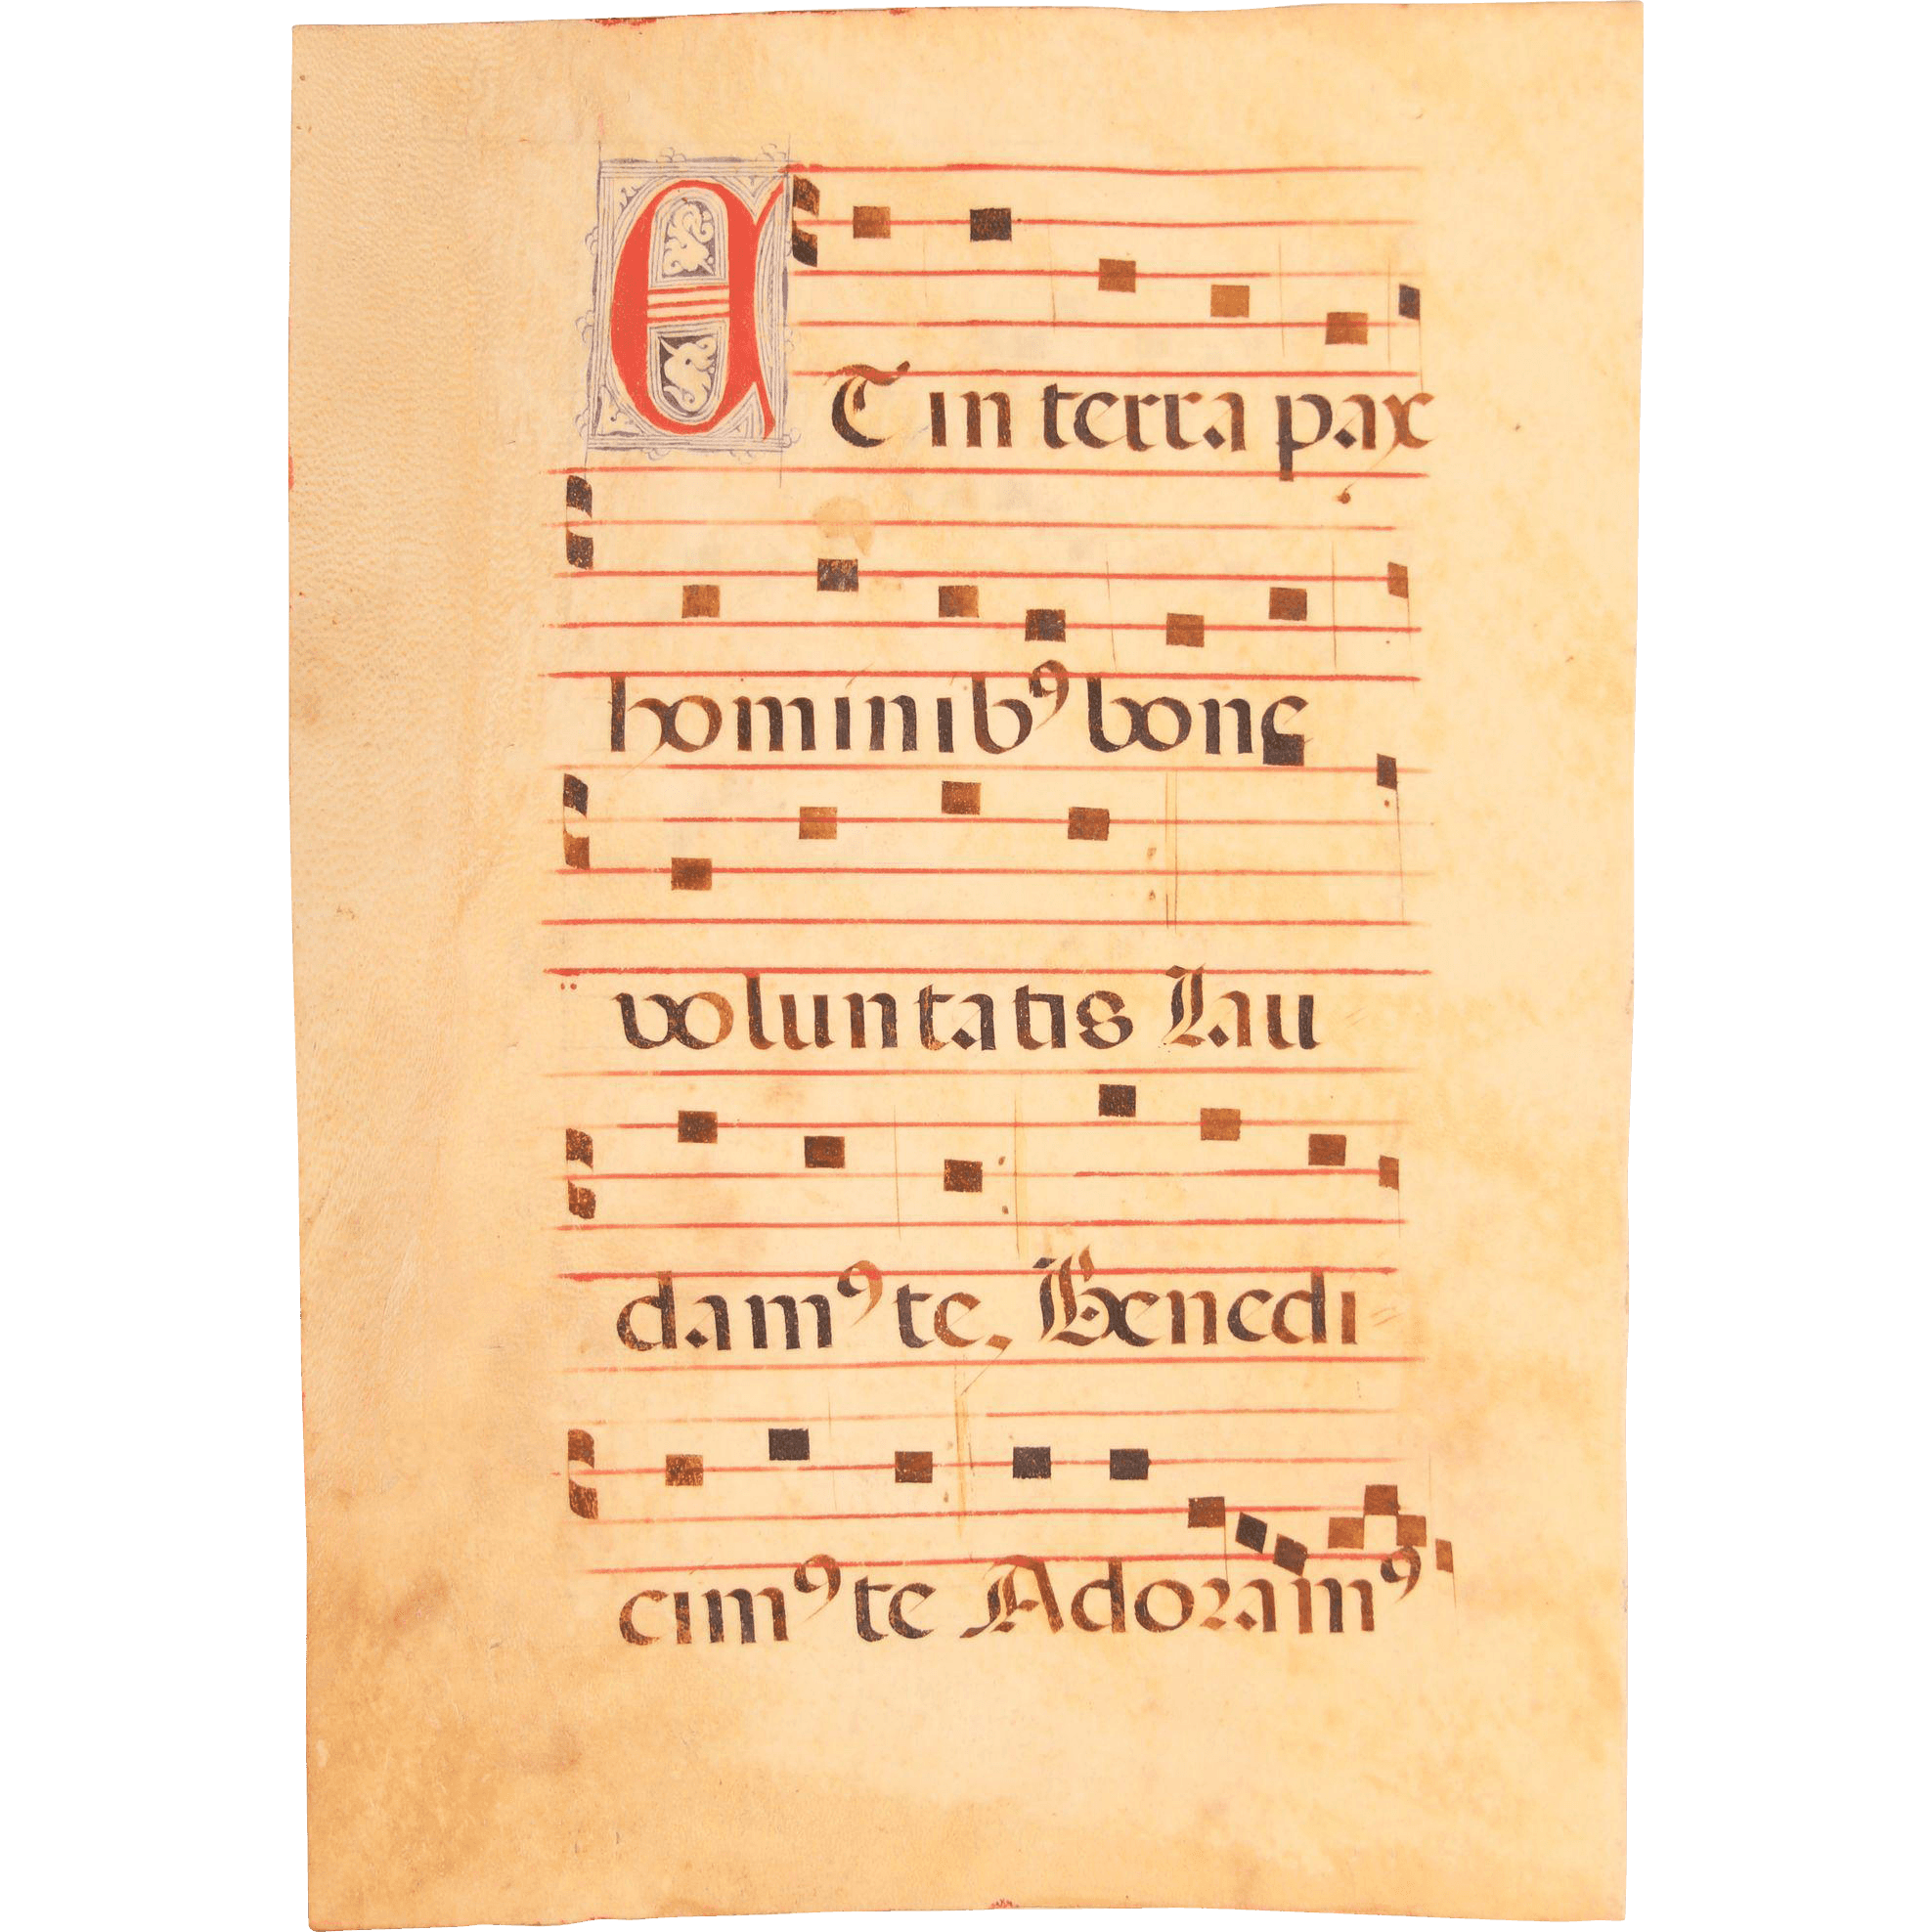 ET in terra pax
hominibꝰ bone
voluntatis Lau
damꝰ te. Benedi
cimꝰ te Adoramꝰ